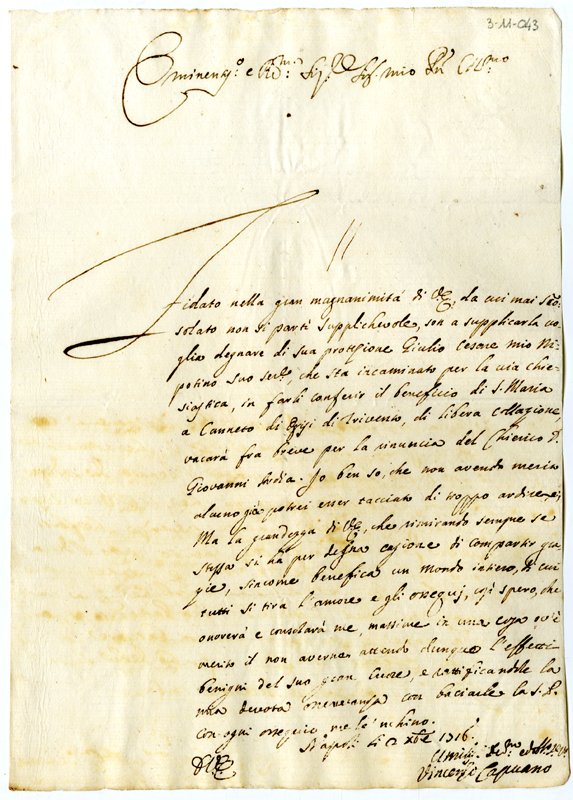 3-11-043
Eminen.o e R.mo Sig.r Sig. mio P.n Col.mo
Fidato nella gran magnanimità di V.E., da cui mai scon-
solato non si partì supplichevole, son a supplicarla vo-
glia degnare di sua protezione Giulio Cesare mio Ni-
potino suo ser.e, che sta incaminato per la via chie-
siastica, in farli conferir il beneficio di S. Maria
a Canneto di di Trivento, di libera collazione,
vacarà fra breve per la rinuncia del Chierico D.
Giovanni. Io ben so, che non avendo merito
alcuno già potrei esser tacciato di troppo ardire;
Ma la grandezza di V.E., che rimirando sempre se
stessa si ha per degna cagione di compartir gra-
zie, siccome benefica un mondo intiero, di cui
tutti si tira l'amore e gli ossequij, così spero, che
onorerà e consolarà me, massime in una cosa ov'è
merito il non averne: attendo dunque l'effetti
benigni del suo gran Cuore, e ratificandole la
mia devota osservanza con baciarle la S.P.
con ogni ossequio me le inchino.
Napoli li 2 Xbre 1716.
D.V.E.
Umilis. De.mo ed
Vincenzo Capuano